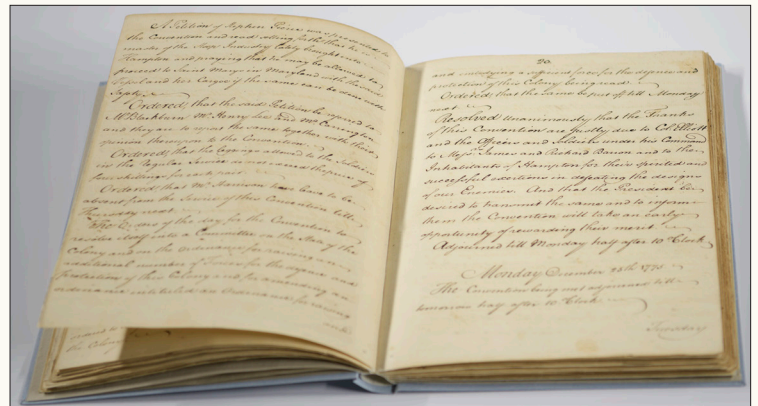 A Petition of Stephen Pierce was presented to
the Convention and read setting forth that he is
master of the Sloop Industry lately brought into
Hampton and praying that he may be allowed to
proceed to Saint Marys in Maryland with the said
Vessel and her Cargo if the same can be done with
Safety
Ordered, that the said Petition be referred to
Mr. Blackburn Mr. Henry Lee and Mr. Carrington
and they are to report the same together with their
opinion thereupon to the Convention.
Ordered, that the Leggings allowed to the Soldiers
in the Regular Service do not exceed the price of
four shillings for each pair
Ordered that Mr. Harrison have leave to be
absent from the Service of this Convention till
Thursday next.
The Orders of the day for the Convention to
resolve itself into a Committee on the State of the
Colony and on the Ordinance for raising an
additional number of Forces for the defence and
protection of this Colony and for amending an
ordinance intituled an Ordinance for raising
and
the Colony
20.
and embodying a sufficient force for the defence and
protection of this Colony being read.
Ordered, that the same be put off till Monday
next
Resolved Unanimously that the Thanks
of this Convention are justly due to Col. Elliott
and the Officers and Soldiers under his Command
to Majr. James and Richard Barron and to the
Inhabitants of Hampton for their spirited and
successful exertions in defeating the designs
of our Enemies. And that the President be
desired to transmit the same and to inform
them the Convention will take an early
opportunity of rewarding their merit.
Adjourned till Monday half after 10 oClock
Monday December 25th 1775
The Convention being met adjourned till
tomorrow half after 10 oClock
Tuesday